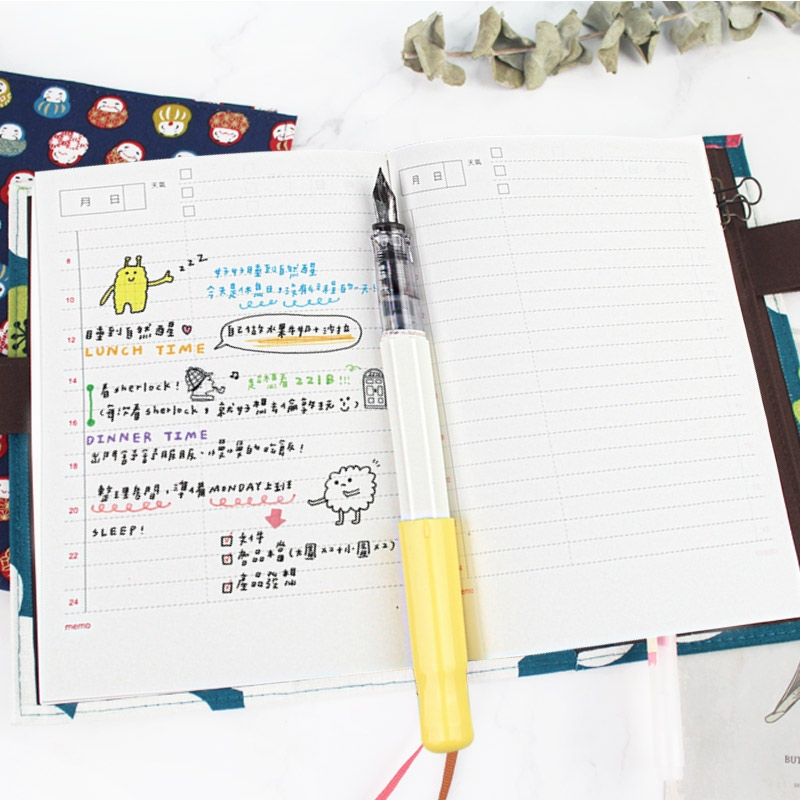 月 日 天氣
月 日 天氣
8
zzz
好好睡到自然醒
10
今天是休息日,沒有
睡到自然醒
自己做水果牛奶+沙拉
12
LUNCH TIME
14
看sherlock!
221B!!!
(每次看sherlock,就好想去倫敦玩
16
DINNER TIME
18
出門舒舒服服、慢慢的吃飯!
整理房間,準備MONDAY上班
20
SLEEP!
文件
22
商品檔(大圖x2+小圖x2)
產品發想
24
memo
memo
BUT